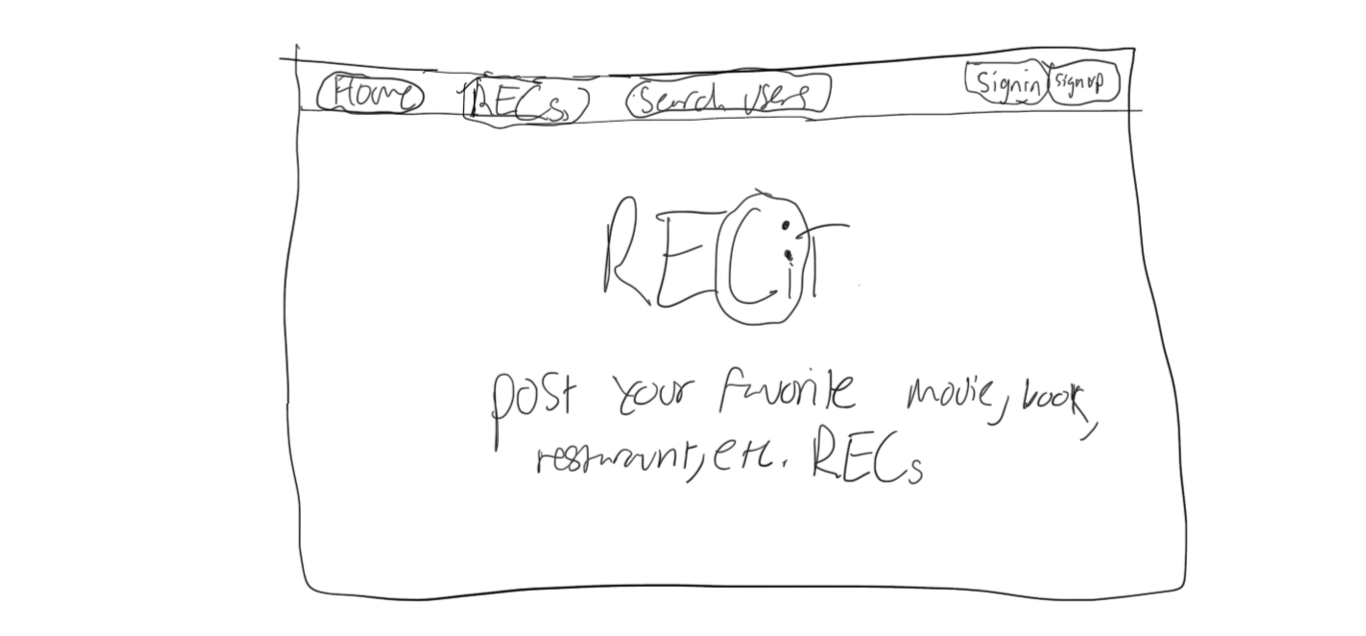 Home RECs Search users Signin signup
RECiT
post your favorite movie, book,
restaurant, etc. RECs